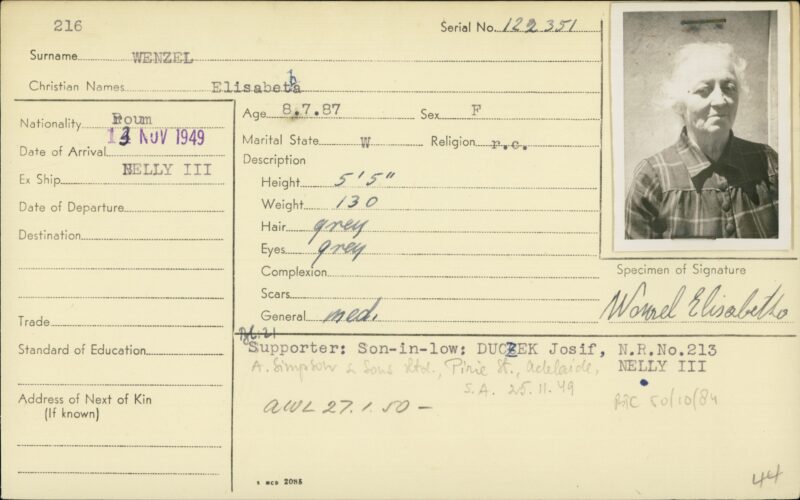 216
Serial No. 122351
Surname WENZEL
Christian Names Elisabetha
Nationality Roum
Date of Arrival 13 NOV 1949
Ex Ship NELLY III
Date of Departure
Destination
Trade
Standard of Education
Address of Next of Kin
(If known)
Age 8.7.87 Sex F
Marital State W Religion r.c.
Description
Height 5'5"
Weight 130
Hair grey
Eyes grey
Complexion
Scars
General med.
Specimen of Signature
Wenzel Elisabetha
Bl.21
Supporter: Son-in-low: DUCZEK Josif, N.R.No.213
NELLY III
A. Simpson & Sons Ltd., Pirie St., Adelaide,
S.A. 25.11.49
AWL 27.1.50 -
50/10/84
S MCD 2085
44